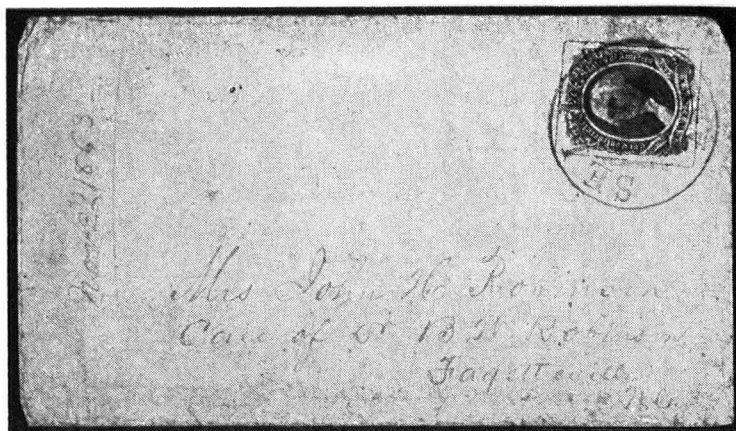 Nov 24 1863
Mrs John H Robinson
Care of Dr B W Robinson
Fayetteville